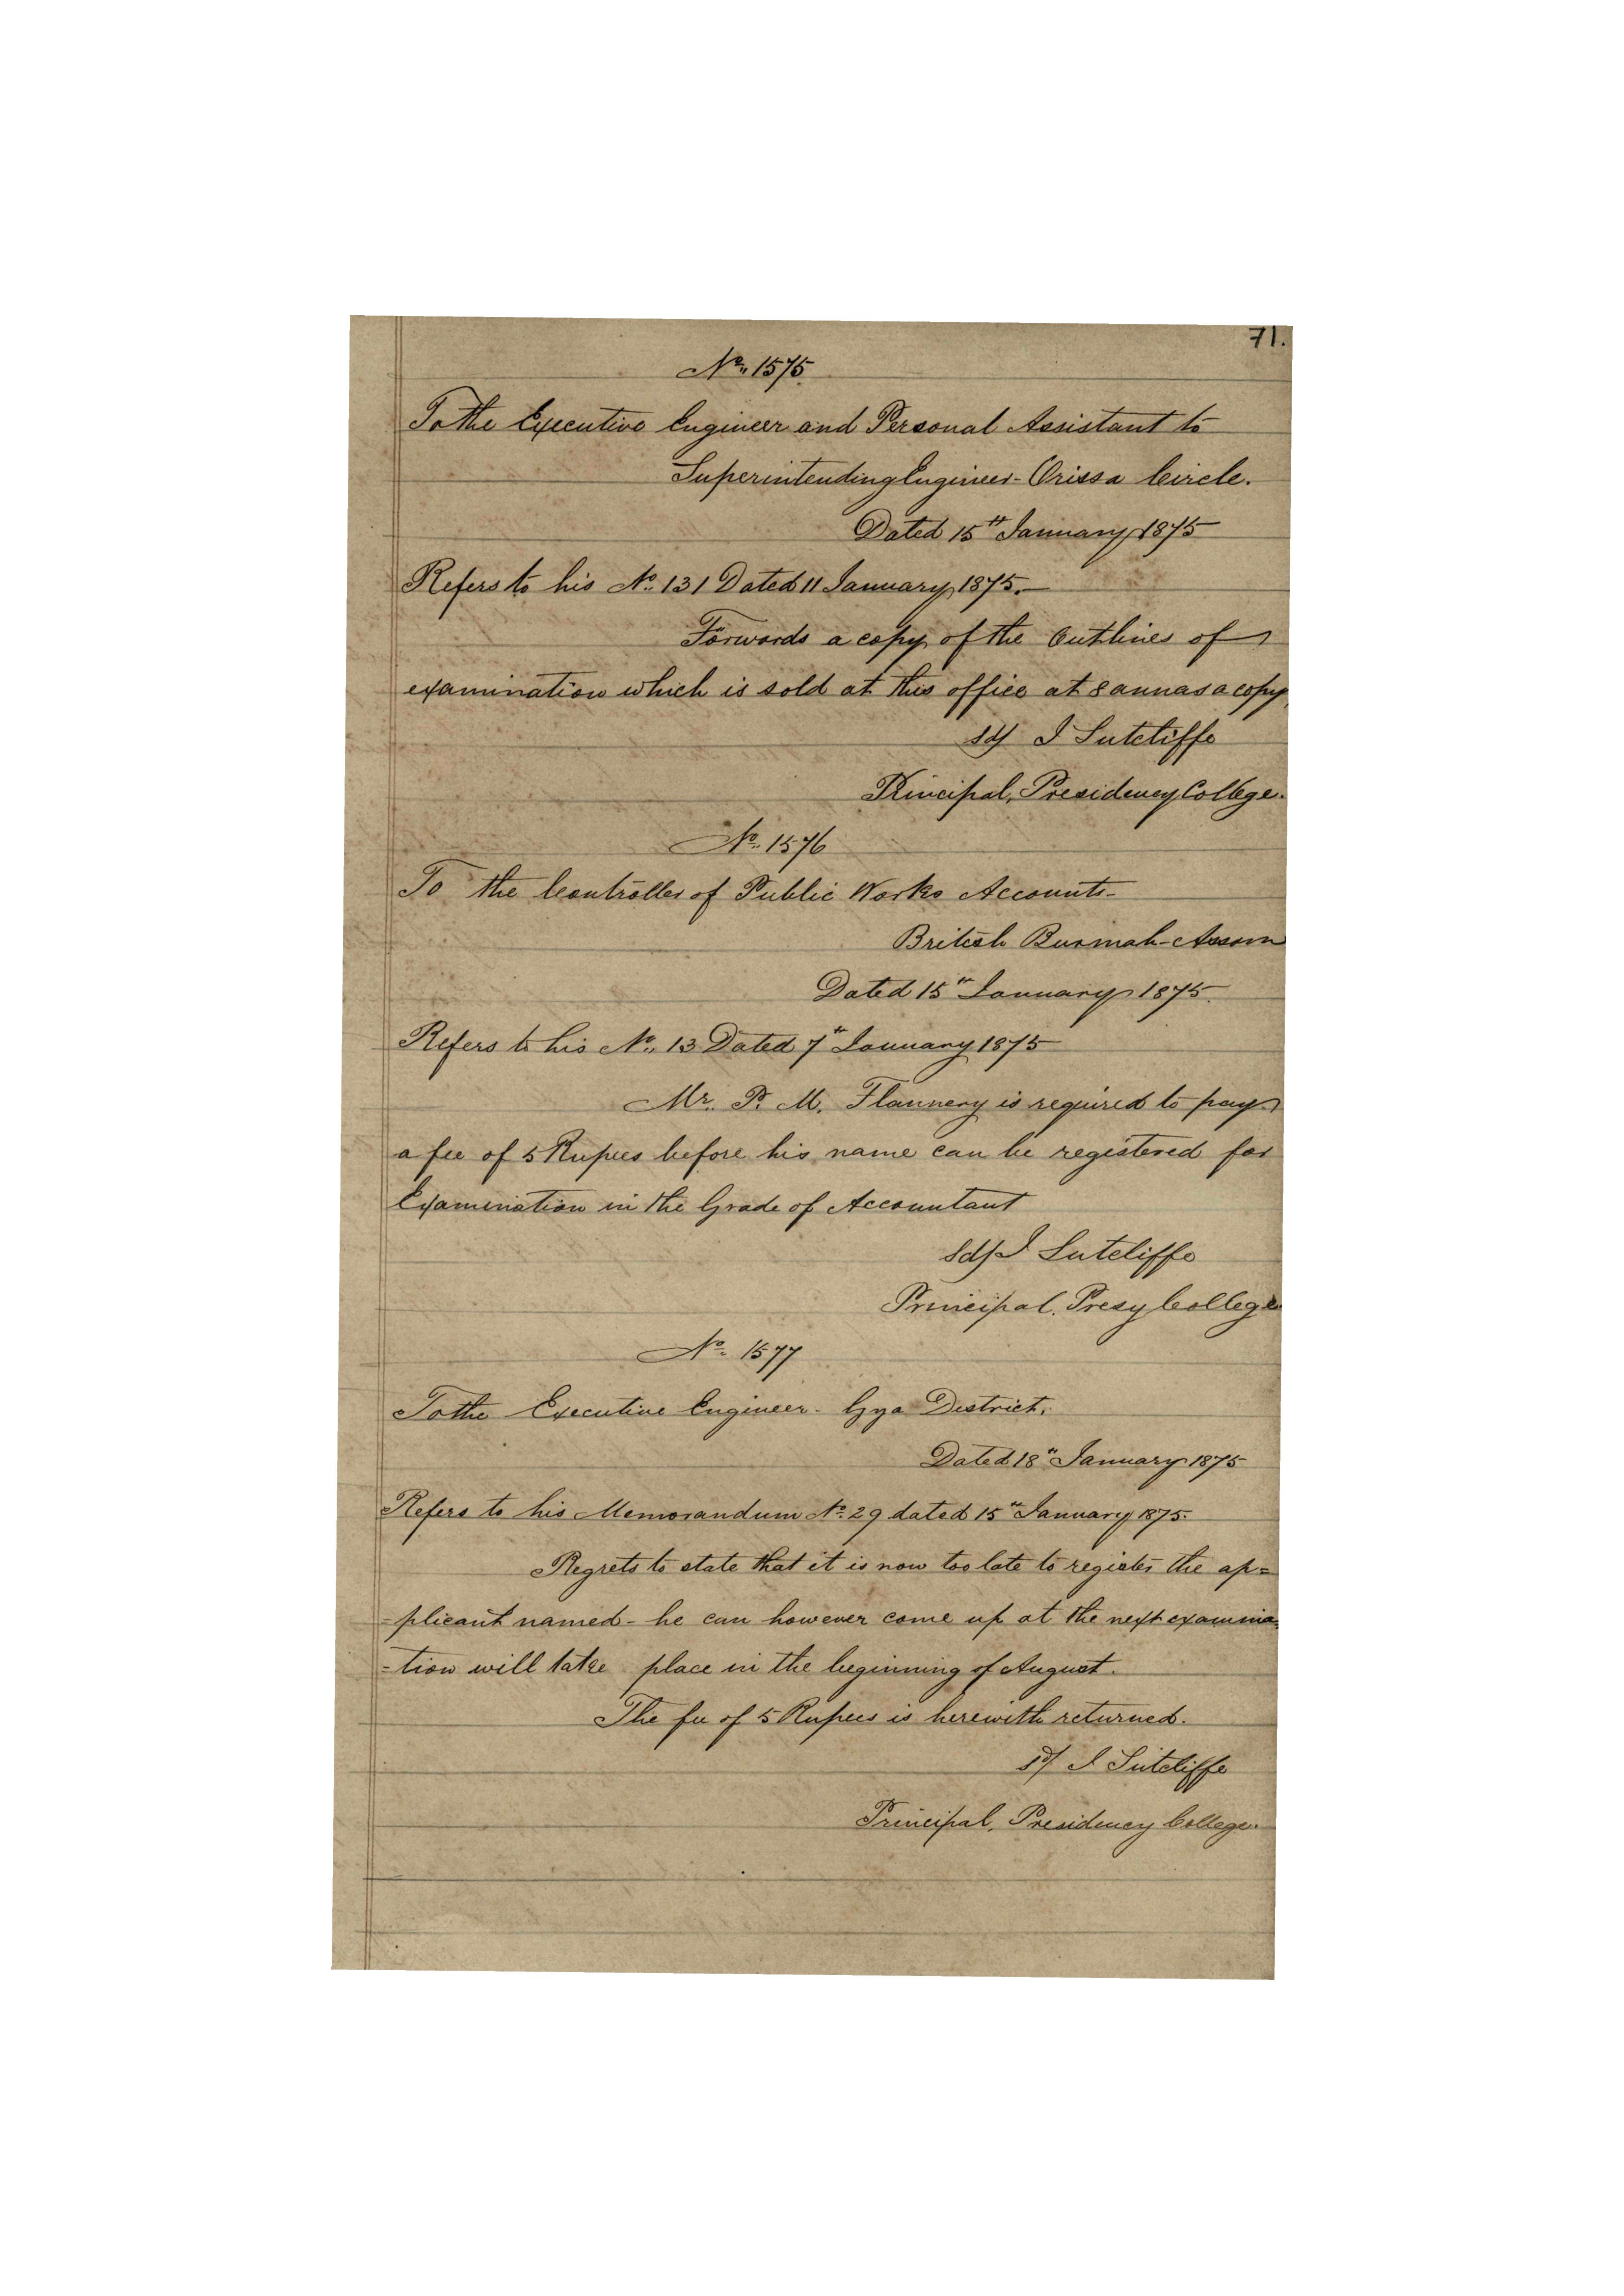 71.
No. 1575
To the Executive Engineer and Personal Assistant to
Superintending Engineer - Orissa Circle.
Dated 15th January, 1875
Refers to his No. 131 Dated 11 January, 1875.—
Forwards a copy of the Outlines of
examination which is sold at this office at 8 annas a copy
Sd/ J Sutcliffe
Principal, Presidency College.
No. 1576
To the Controller of Public Works Accounts-
British Burmah - Assam
Dated 15th January 1875.
Refers to his No. 13 Dated 7th January 1875
Mr. P. M. Flannery is required to pay
a fee of 5 Rupees before his name can be registered for
Examination in the Grade of Accountant
Sd/ J Sutcliffe
Principal. Presy College
No. 1577
To the Executive Engineer - Gya District.
Dated 18th January 1875
Refers to his Memorandum No. 29 dated 15th January 1875.
Regrets to state that it is now too late to register the ap=
=plicant named - he can however come up at the next examina=
=tion will take place in the beginning of August.
The fee of 5 Rupees is herewith returned.
Sd/ J Sutcliffe
Principal, Presidency College.